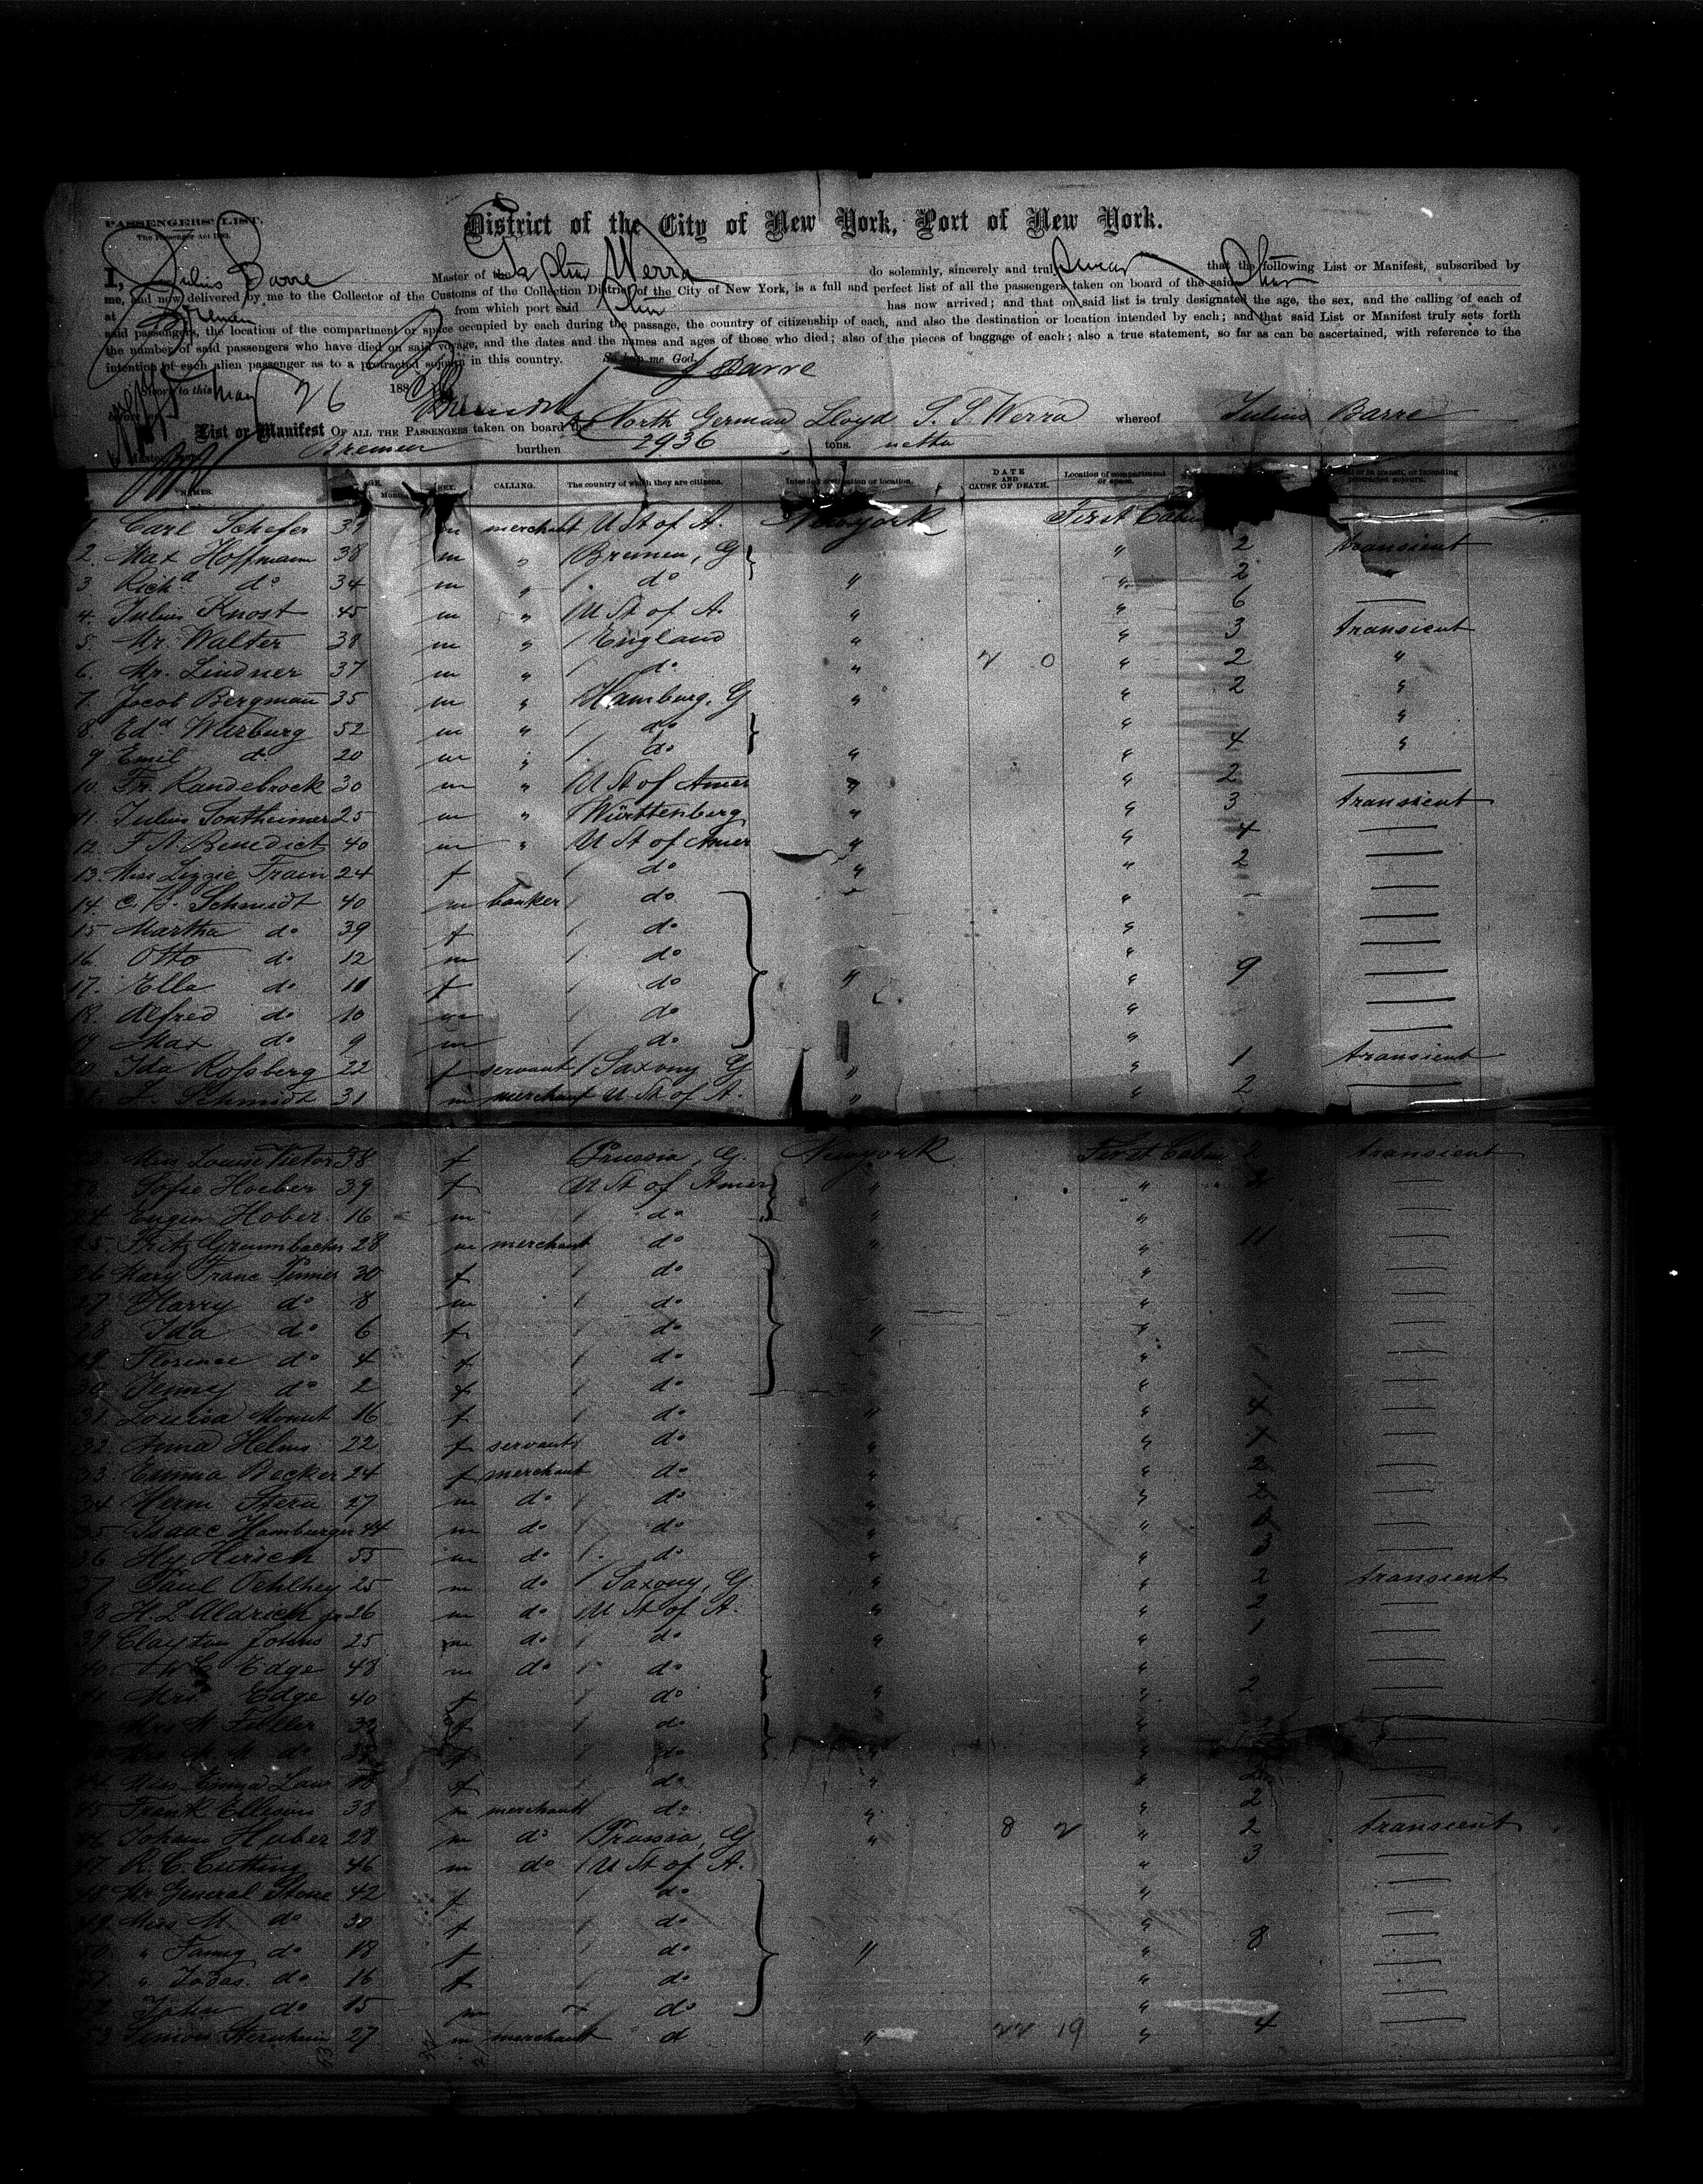 PASSENGERS' LIST.
District of the City of New York, Port of New York.
The Passenger Act 1882.
I, Julius Barre Master of the Werra do solemnly, sincerely and truly swear that the following List or Manifest, subscribed by
me, and now delivered by me to the Collector of the Customs of the Collection District of the City of New York, is a full and perfect list of all the passengers taken on board of the said
at Bremen from which port said has now arrived; and that on said list is truly designated the age, the sex, and the calling of each of
said passengers, the location of the compartment or space occupied by each during the passage, the country of citizenship of each, and also the destination or location intended by each; and that said List or Manifest truly sets forth
the number of said passengers who have died on said voyage, and the dates and the names and ages of those who died; also of the pieces of baggage of each; also a true statement, so far as can be ascertained, with reference to the
intention of each alien passenger as to a protracted sojourn in this country. So help me God. J Barre
Sworn to this May 26 188
before me
List or Manifest OF ALL THE PASSENGERS taken on board the North German Lloyd S. S. Werra whereof Julius Barre
Bremen burthen 2936 tons. netto
NAMES. SEX. CALLING. The country of which they are citizens. Intended destination or location. DATE AND CAUSE OF DEATH. Location of compartment or space. or in transit, or intending protracted sojourn.
1. Carl Schefer 39 m merchant U St of A. Newyork First Cabin
2. Max Hoffmann 38 m " Bremen, G } " 2 transient
3 Richd. do 34 m " do " " 2
4. Julius Knost 45 m " U St of A. " " 6
5. Mr. Walter 38 m " England " " 3 transient
6. Mr. Lindner 37 m " do " " 2 "
7. Jacob Bergmann 35 m " Hamburg, G " " 2 "
8. Edd Warburg 52 m " do } " "
9 Emil do 20 m " do " " 4 "
10. Fr. Randebrock 30 m " U St of Amer " " 2
11. Julius Sontheimer 25 m " Württenberg " " 3 transient
12. F. A. Benedict 40 m " U St of Amer " " 4
13. Miss Lizzie Train 24 f do " " 2
14. C. B. Schmidt 40 m banker do "
15 Martha do 39 f do "
16 Otto do 12 m do "
17. Ella do 11 f do " " 9
18. Alfred do 10 m do "
19 Max do 9 m do "
20 Ida Roßberg 22 f servant Saxony G " " 1 transient
21. L. Schmidt 31 m merchant U St of A. " " 2
Miss Louise Victor 38 f Prussia, G. Newyork First Cabin 2 transient
23 Sofie Hoeber 39 f U St of Amer " "
24 Eugen Hober. 16 m do " "
25. Fritz Grumbacher 28 m merchant do " " 11
26 Mary Franc 30 f do "
27 Harry do 8 m do "
28 Ida do 6 f do " "
29 Florence do 4 f do "
30 Jenny do 2 f do "
31 Louisa 16 f do " " 4
32. Anna Helms 22 f servant do " "
33. Emma Becker 24 f merchant do " " 2
34 Herm Stern 27 m do do " " 2
35 Isaac Hamburger 44 m do do " "
36 Hy Hirsch 55 m do do " " 3
37 Paul 25 m do Saxony, G " " 2 transient
38 H. L. Aldrich jr 26 m do U St of A. " " 2
39 Clayton Johns 25 m do do " " 1
40 Edge 48 m do do "
41 Mrs Edge 40 f do " " 2
Mrs f do "
do f do " "
44 Miss Emma f do " "
45 Frank Ellison 38 m merchant do " " 2
46 Johann Huber 28 m do Prussia, G " " 2 transient
47. R. C. Cutting 46 m do U St of A. " 3
48 Mr General Stone 42 f do "
49 Miss M. do 30 f do "
50 " Fanny do 18 f do " " 8
51. " do 16 f do "
52. John do 15 m do "
53 27 m merchant d " 19 " 4